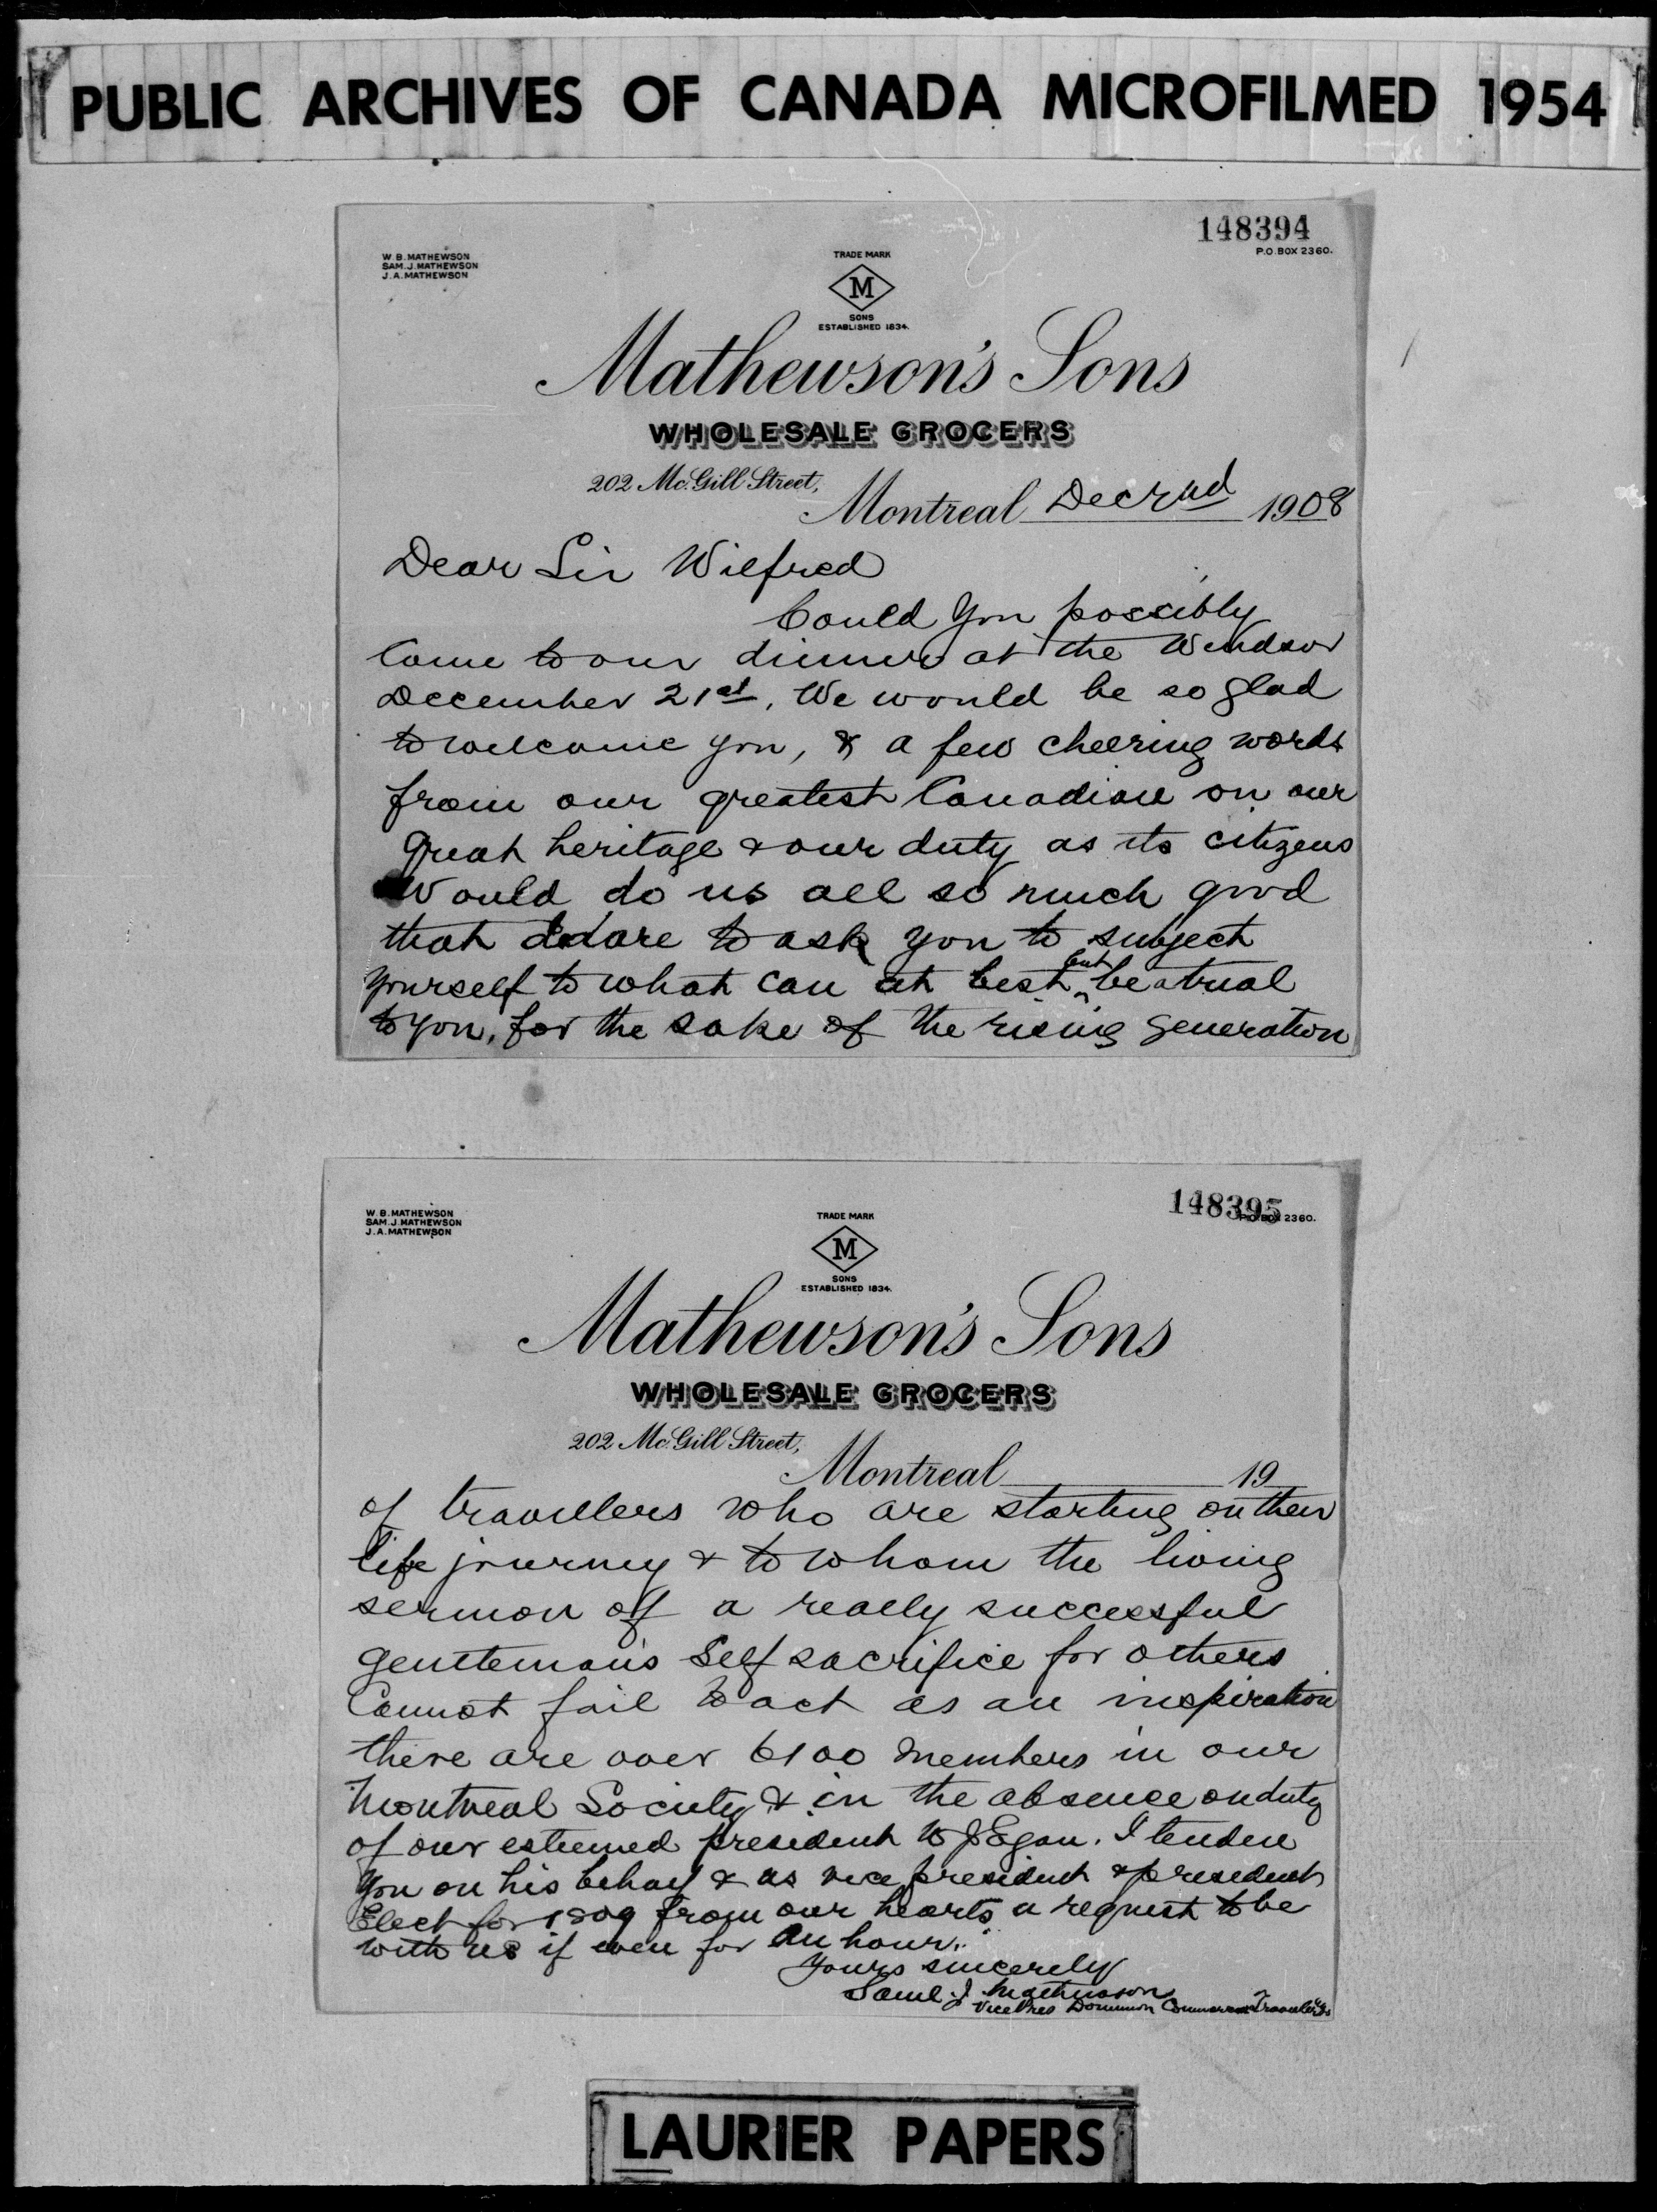 PUBLIC ARCHIVES OF CANADA MICROFILMED 1954
148394
P.O. BOX 2360.
W. B. MATHEWSON
SAM. J. MATHEWSON
J. A. MATHEWSON
TRADE MARK
M
SONS
ESTABLISHED 1834.
Mathewson's Sons
WHOLESALE GROCERS
202 Mc.Gill Street,
Montreal Dec 2nd 1908
Dear Sir Wilfred
Could you possibly
Come to our dinner at the Windsor
December 21st. We would be so glad
to welcome you, & a few cheering words
from our greatest Canadian on our
great heritage & our duty as its citizens
Would do us all so much good
that I dare to ask you to subject
yourself to what can at best but be a trial
to you, for the sake of the rising generation
148395
P.O. BOX 2360.
W. B. MATHEWSON
SAM. J. MATHEWSON
J. A. MATHEWSON
TRADE MARK
M
SONS
ESTABLISHED 1834.
Mathewson's Sons
WHOLESALE GROCERS
202 Mc.Gill Street,
Montreal 19
of travellers who are starting on their
life journey & to whom the living
sermon of a really successful
gentleman's self sacrifice for others
Cannot fail to act as an inspiration
there are over 6100 members in our
Montreal Society & in the absence on duty
of our esteemed president W J Egan. I tender
you on his behalf & as vice president & president
Elect for 1909 from our hearts a request to be
with us if even for an hour.
Yours sincerely
Saml. J. Mathewson
Vice Pres Dominion Commercial Travellers
LAURIER PAPERS